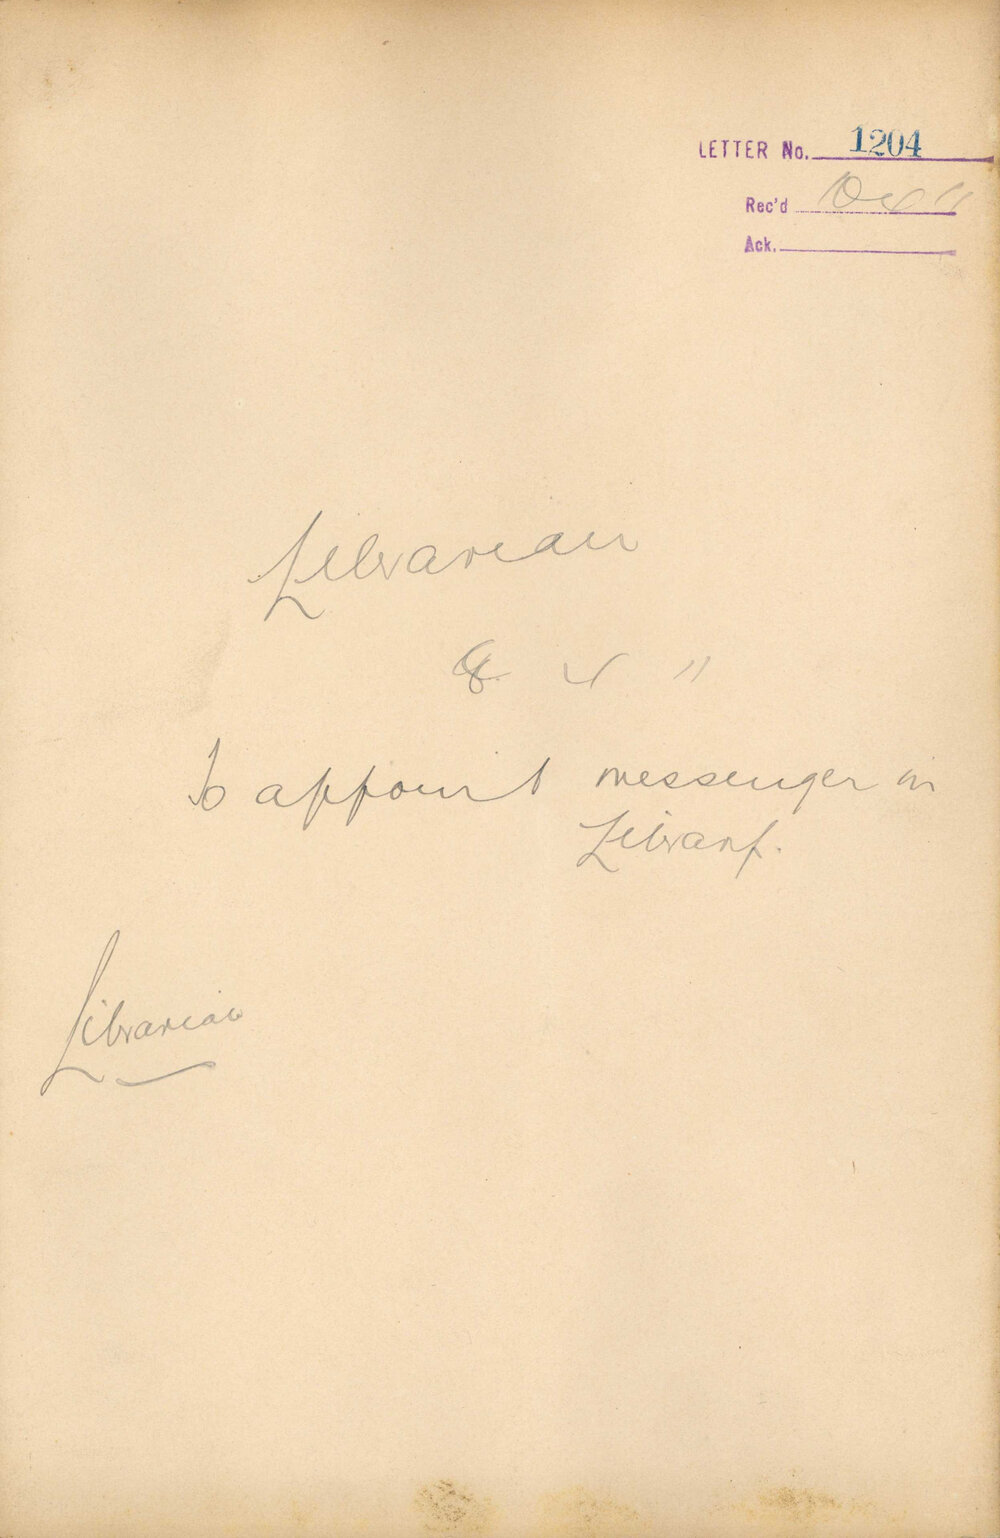 LETTER No. 1204
Rec'd
Ack.
Librarian
To appoint messenger in
Library.
Librarian